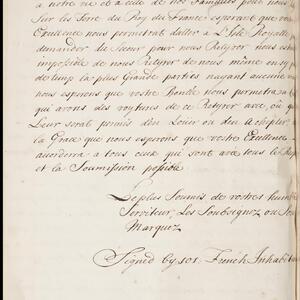 a notre vie et a celle de nos Familles pour nous
Sur les Terre du Roy du France esperant que votre
Exellence nous permetrat daller a L'Isle Royalle
demander du Secour pour nous Retyrer nous est
imposible de nous Retyrer de nous même en sy peu
de temp la plus Grande parties nayant aucune
nous esperons que votre Bonté nous permetra a C
qui avons des voytures de ce Retyrer avec, ou qu
Leur serat permis den Louer ou den Achepter
la Grace que nous esperons que votre Exellence
acordera a tous ceux qui sont avec tous le Resp
et la Soumission posible
De plus Soumis de vostres humble
Serviteur, Les Soubsignez ou Sou
Marquez
Signed by 101 French Inhabitan